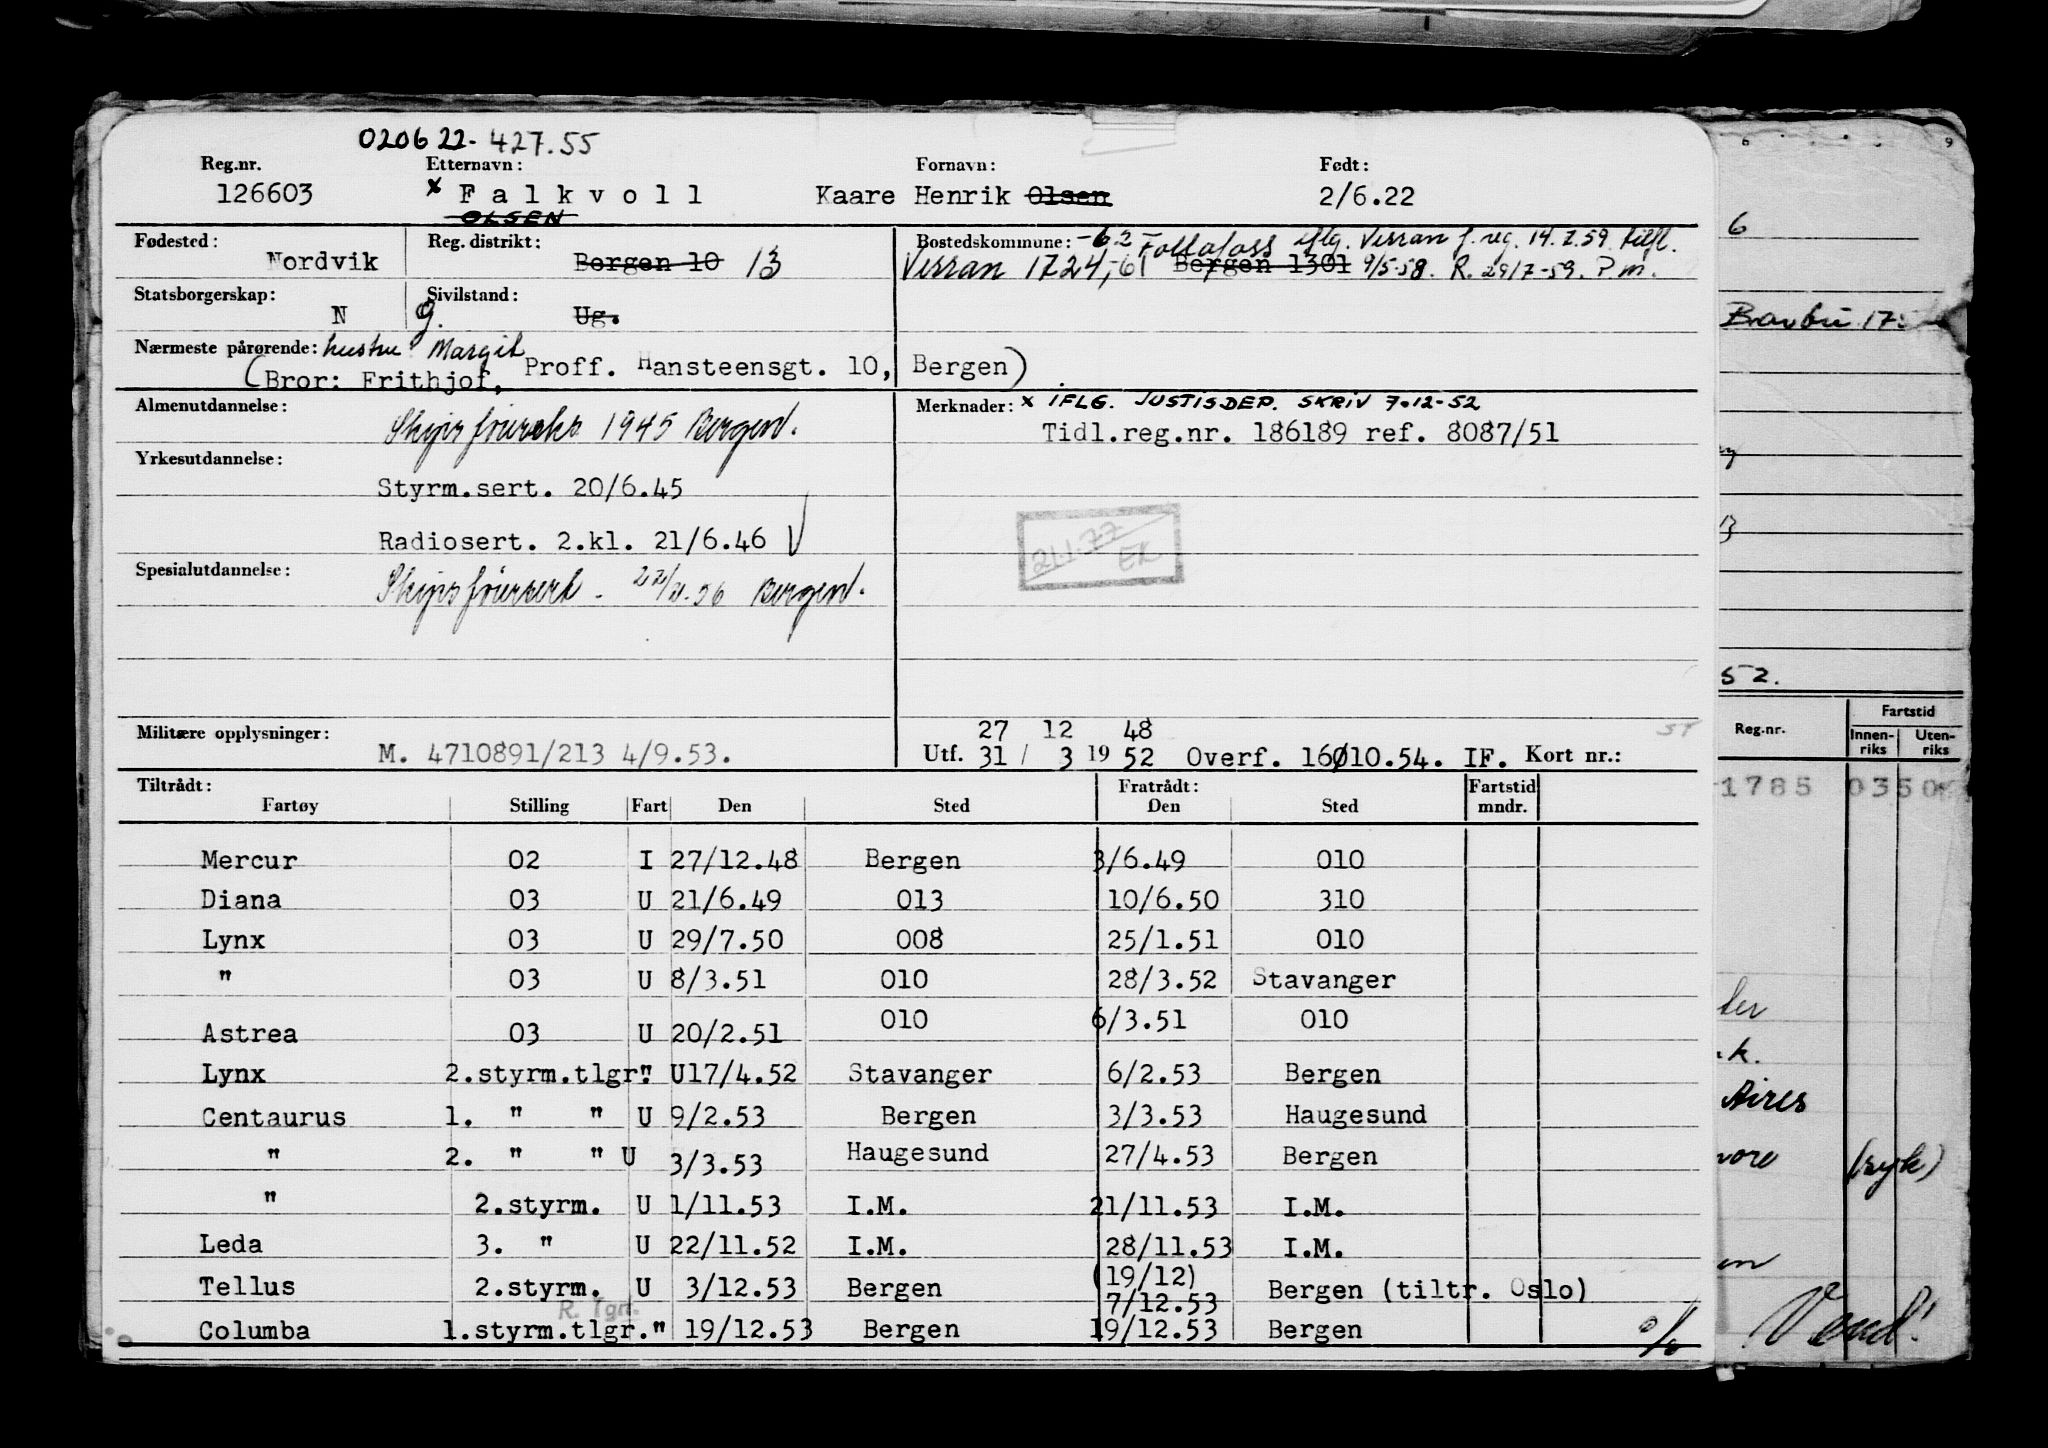 020622-427.55
Reg.nr. Etternavn: Fornavn: Født:
126603 x Falkvoll Kaare Henrik Olsen 2/6.22
OLSEN
Fødested: Reg. distrikt: Bostedskommune: -62 Follafoss iflg. Verran f. reg. 14.7.59 tilfl.
Nordvik Bergen 10 13 Verran 1724,-61 Bergen 1301 9/5-58. R. 29/7-59. P.m.
Statsborgerskap: Sivilstand:
N g. Ug.
Nærmeste pårørende: hustru Margit
(Bror: Frithjof, Proff. Hansteensgt. 10, Bergen)
Almenutdannelse: Merknader: x IFLG. JUSTISDEP. SKRIV 7-12-52
1945 Bergen. Tidl.reg.nr. 186189 ref. 8087/51
Yrkesutdannelse:
Styrm.sert. 20/6.45
Radiosert. 2.kl. 21/6.46 V
21.1.77
EK
Spesialutdannelse:
56 Bergen.
27 12 48
Militære opplysninger: M. 4710891/213 4/9.53. Utf. 31/ 3 19 52 Overf. 16/10.54. IF. Kort nr.:
Tiltrådt: Fratrådt: Fartstid
Fartøy Stilling Fart Den Sted Den Sted mndr.
Mercur 02 I 27/12.48 Bergen 3/6.49 010
Diana 03 U 21/6.49 013 10/6.50 310
Lynx 03 U 29/7.50 008 25/1.51 010
" 03 U 8/3.51 010 28/3.52 Stavanger
Astrea 03 U 20/2.51 010 6/3.51 010
Lynx 2.styrm.tlgr." U17/4.52 Stavanger 6/2.53 Bergen
Centaurus 1. " " U 9/2.53 Bergen 3/3.53 Haugesund
" 2. " " U 3/3.53 Haugesund 27/4.53 Bergen
" 2.styrm. U 1/11.53 I.M. 21/11.53 I.M.
Leda 3. " U 22/11.52 I.M. 28/11.53 I.M.
(19/12)
Tellus 2.styrm. U 3/12.53 Bergen 7/12.53 Bergen (tiltr. Oslo)
R. Tgr.
Columba 1.styrm.tlgr." 19/12.53 Bergen 19/12.53 Bergen
6 9
6
52.
Reg.nr. Fartstid
Innenriks Utenriks
1785 0350
k.
Aires
(syk)
en
Vend!